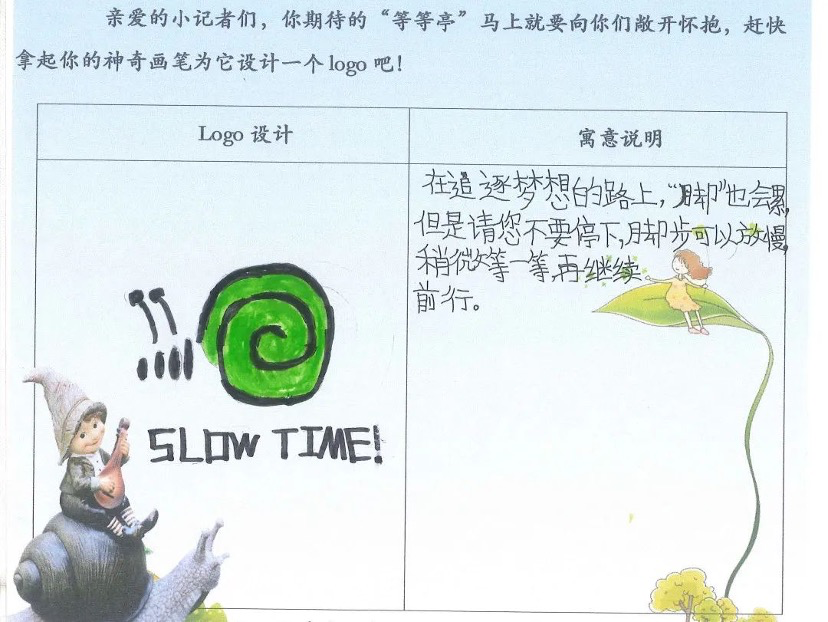 亲爱的小记者们，你期待的“等等亭”马上就要向你们敞开怀抱，赶快
拿起你的神奇画笔为它设计一个 logo 吧！
Logo 设计
寓意说明
在追逐梦想的路上，“脚”也会累，
但是请您不要停下，脚步可以放慢，
稍微等一等，再继续
前行。
SLOW TIME!